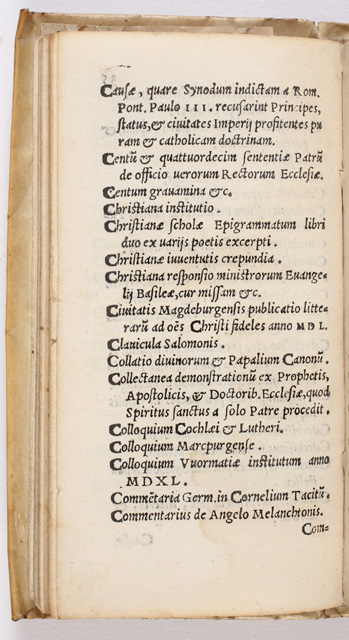 Causæ, quare Synodum indictam a Rom.
Pont. Paulo III. recusarint Principes,
status, & ciuitates Imperij profitentes pu
ram & catholicam doctrinam.
Centū & quattuordecim sententiæ Patrū
de officio uerorum Rectorum Ecclesiæ.
Centum grauamina &c.
Christiana institutio.
Christianæ scholæ Epigrammatum libri
duo ex uarijs poetis excerpti.
Christianæ iuuentutis crepundia.
Christiana responsio ministrorum Euange-
lij Basileæ, cur missam &c.
Ciuitatis Magdeburgensis publicatio litte-
rarū ad oēs Christi fideles anno MDL.
Clauicula Salomonis.
Collatio diuinorum & Papalium Canonū.
Collectanea demonstrationū ex Prophetis,
Apostolicis, & Doctorib. Ecclesiæ, quod
Spiritus sanctus a solo Patre procedit.
Colloquium Cochlæi & Lutheri.
Colloquium Marcpurgense.
Colloquium Vuormatiæ institutum anno
MDXL.
Commētaria Germ. in Cornelium Tacitū.
Commentarius de Angelo Melanchtonis.
Com-